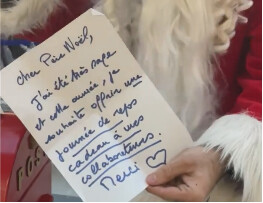 Cher Père Noël,
J'ai été très sage
et cette année, je
souhaite offrir une
journée de repos
cadeau à mes
collaborateurs.
Merci ♡